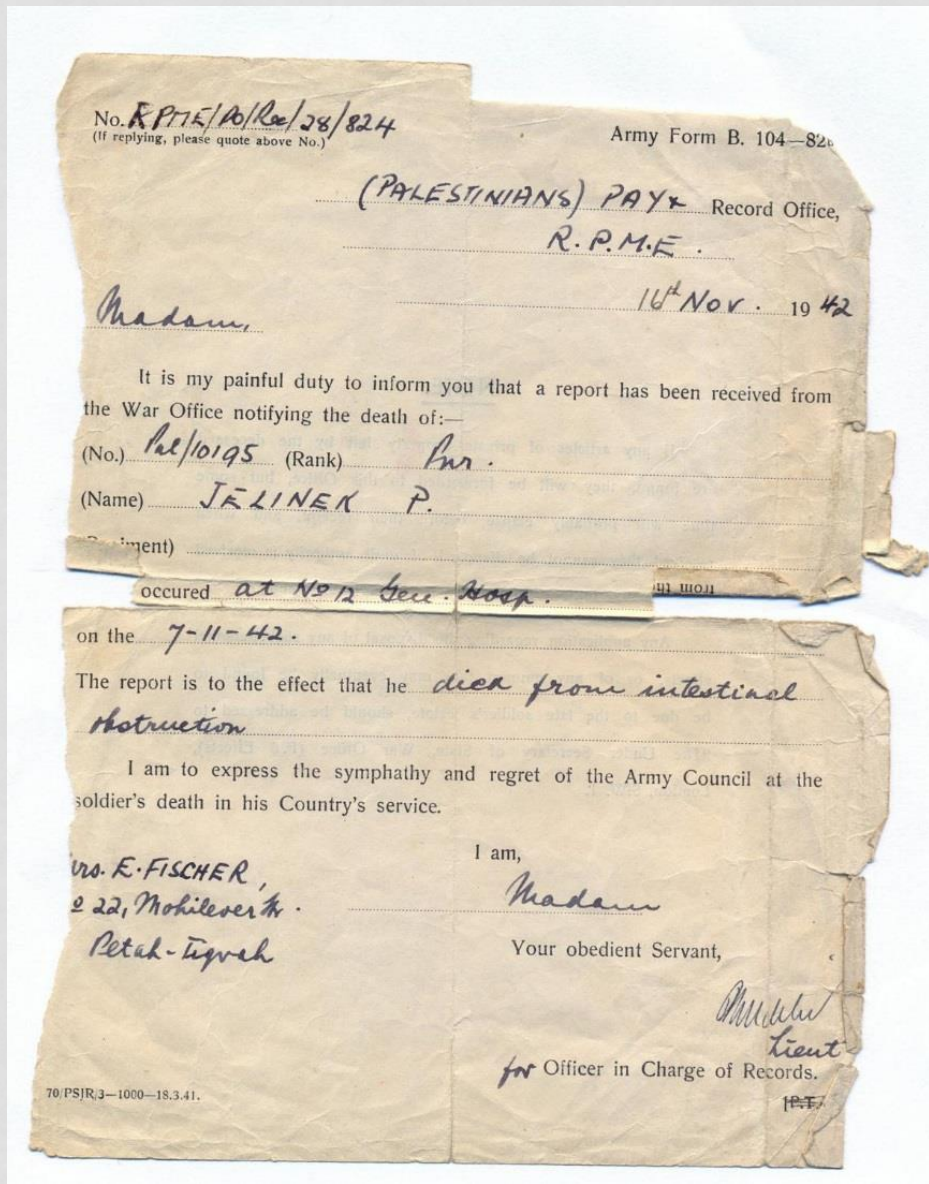 No. RPME/Po/Rec/28/824
(If replying, please quote above No.)
Army Form B. 104—82
(PALESTINIANS) PAY & Record Office,
R.P.M.E.
16th Nov. 1942
Madam,
It is my painful duty to inform you that a report has been received from
the War Office notifying the death of:—
(No.) Pal/10195 (Rank) Pnr.
(Name) JELINEK P.
iment)
occured at No 12 Gen. Hosp.
from th
on the 7-11-42.
The report is to the effect that he died from intestinal
obstruction
I am to express the symphathy and regret of the Army Council at the
soldier's death in his Country's service.
I am,
Madam
Your obedient Servant,
Lieut
for Officer in Charge of Records.
rs. E. FISCHER,
o 22, Mohilever Str.
Petah-Tiqvah
70/PS|R/3—1000—18.3.41.
[P.T.